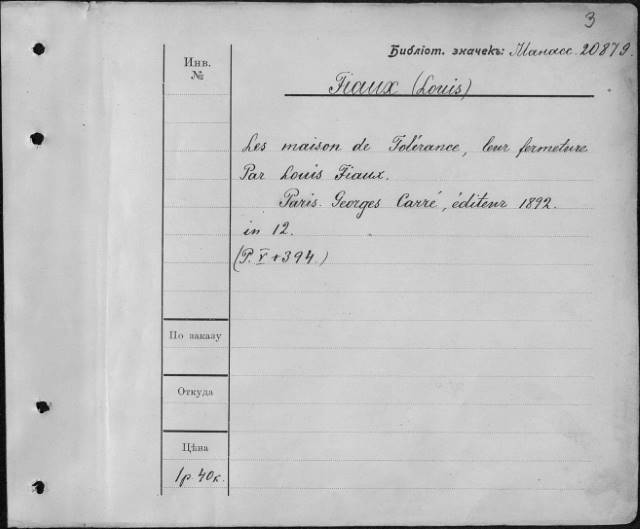 3
Библіот. значекъ: Манасс. 20879.
Инв.
№
Fiaux (Louis)
Les maison de Tolérance, leur fermeture
Par Louis Fiaux.
Paris. Georges Carré, éditeur 1892.
in 12.
(P. V + 394.)
По заказу
Откуда
Цѣна
1р. 40к.